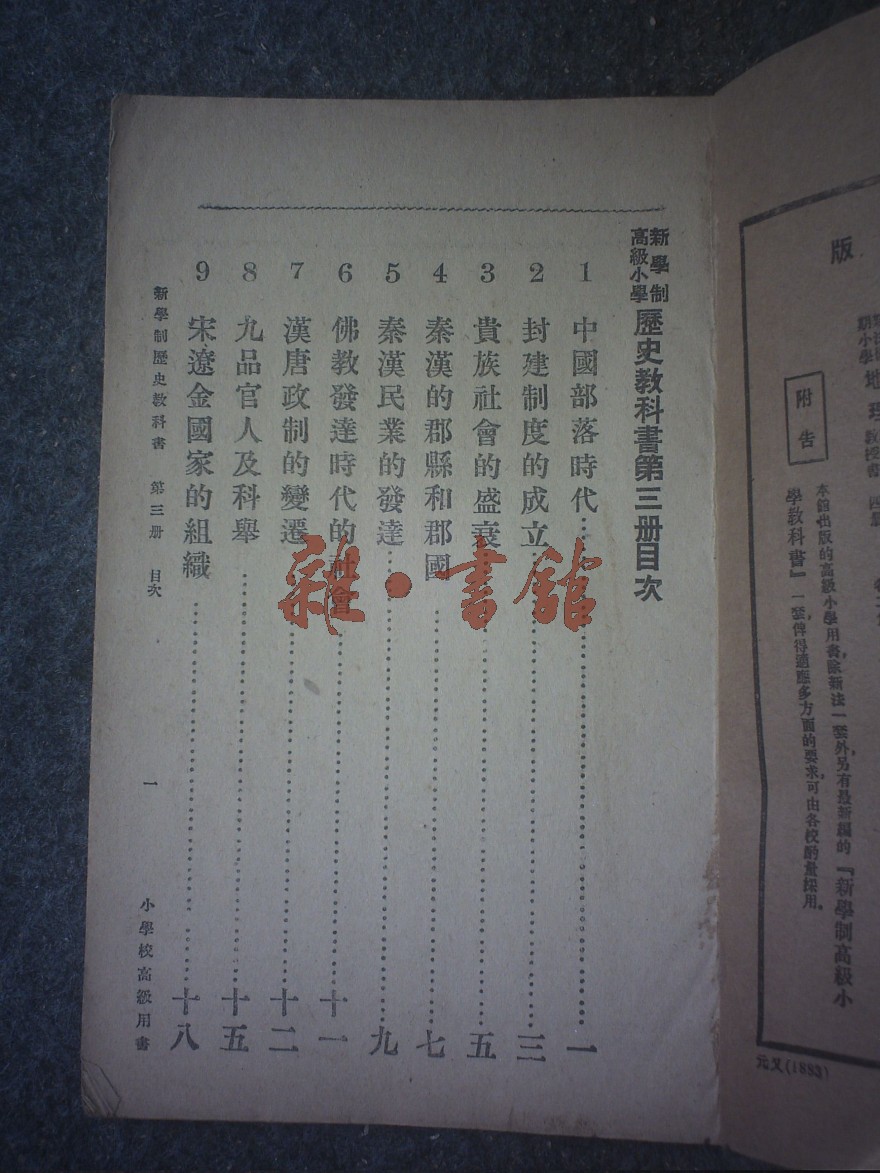 版
地理教授書
附告
本館出版的高級小學用書，除新法一套外，另有最新編的『新學制高級小
學教科書』一套，俾得適應多方面的要求，可由各校酌量採用。
元又(1883)
新學制
高級小學
歷史教科書第三册目次
1 中國部落時代…一
2 封建制度的成立…三
3 貴族社會的盛衰…五
4 秦漢的郡縣和郡國…七
5 秦漢民業的發達…九
6 佛教發達時代的社會…十一
7 漢唐政制的變遷…十二
8 九品官人及科舉…十五
9 宋遼金國家的組織…十八
新學制歷史教科書 第三册 目次 一 小學校高級用書
雜·書館